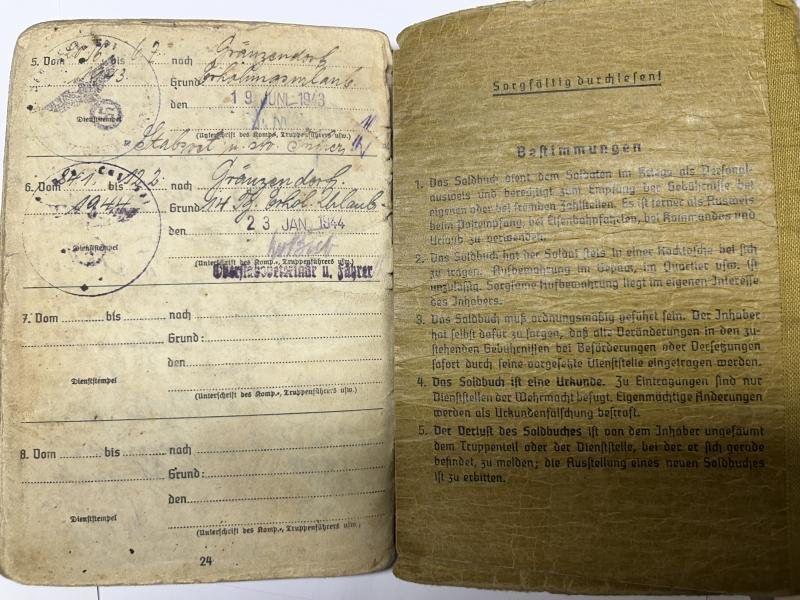 5. Vom bis 6.7. nach Gränzendorf
1943 Grund: Erholungsurlaub
den 19. JUNI 1943
Dienststempel
(Unterschrift des Komp.-, Truppenführers usw.)
6. Vom 24.1. bis 12.2. nach Gränzendorf.
1944 Grund: 14 Tg. Erhol. Urlaub
den 23. JAN. 1944
Dienststempel
(Unterschrift des Komp.-, Truppenführers usw.)
Oberstabsveterinär u. Führer
7. Vom bis nach
Grund:
den
Dienststempel
(Unterschrift des Komp.-, Truppenführers usw.)
8. Vom bis nach
Grund:
den
Dienststempel
(Unterschrift des Komp.-, Truppenführers usw.)
24
Sorgfältig durchlesen!
Bestimmungen
1. Das Soldbuch dient dem Soldaten im Kriege als Personal-
ausweis und berechtigt zum Empfang der Gebührnisse bei
eigenen oder bei fremden Zahlstellen. Es ist ferner als Ausweis
beim Postempfang, bei Eisenbahnfahrten, bei Kommandos und
Urlaub zu verwenden.
2. Das Soldbuch hat der Soldat stets in einer Rocktasche bei sich
zu tragen. Aufbewahrung im Gepäck, im Quartier usw. ist
unzulässig. Sorgsame Aufbewahrung liegt im eigenen Interesse
des Inhabers.
3. Das Soldbuch muß ordnungsmäßig geführt sein. Der Inhaber
hat selbst dafür zu sorgen, daß alle Veränderungen in den zu-
stehenden Gebührnissen bei Beförderungen oder Versetzungen
sofort durch seine vorgesetzte Dienststelle eingetragen werden.
4. Das Soldbuch ist eine Urkunde. Zu Eintragungen sind nur
Dienststellen der Wehrmacht befugt. Eigenmächtige Änderungen
werden als Urkundenfälschung bestraft.
5. Der Verlust des Soldbuches ist von dem Inhaber ungesäumt
dem Truppenteil oder der Dienststelle, bei der er sich gerade
befindet, zu melden; die Ausstellung eines neuen Soldbuches
ist zu erbitten.